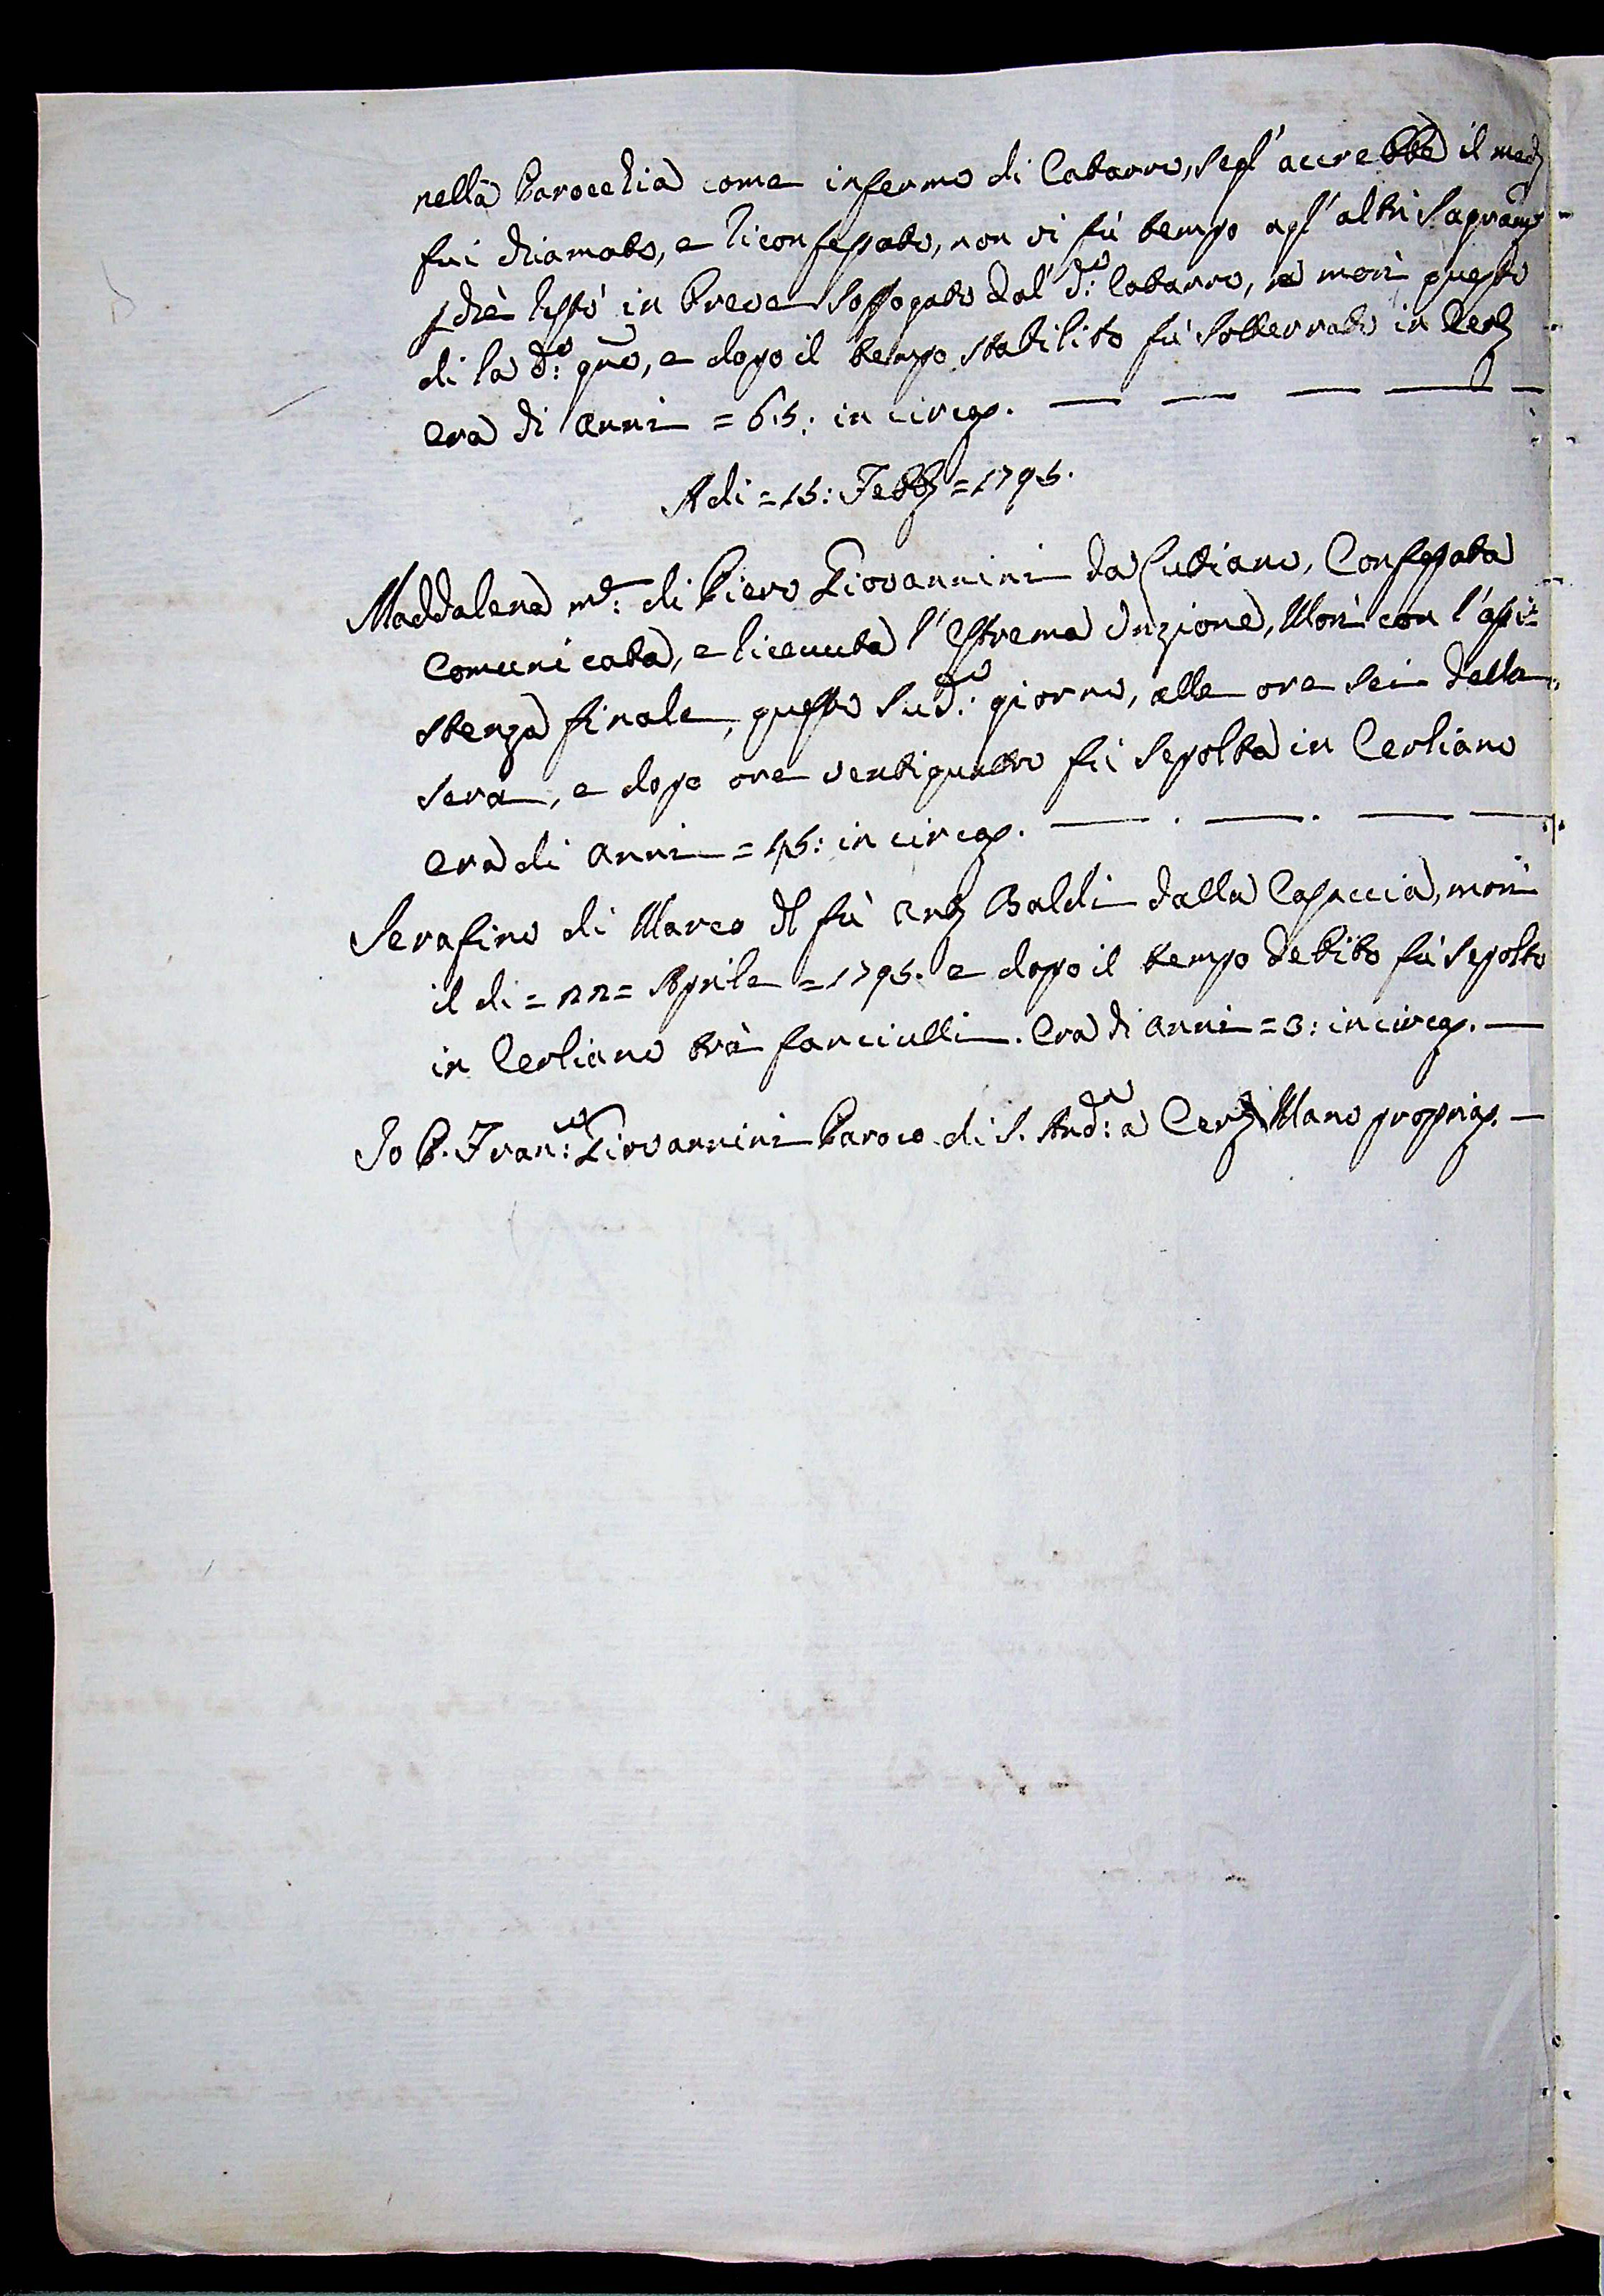 nella Parocchia come infermo di Catarro, segl' accrebbe il med
fui chiamato, e riconfessato, non vi fù tempo agl' altri Sagram
pchè restò in breve soffogato dal d:o Catarro, e morì questo
di la d:o quo, e dopo il tempo stabilito fù sotterrato in Cerl
era di anni = 65: in circa.
Adi = 15: Febb = 1795.
Maddalena m: di Piero Giovannini da Cutiano, Confessata
Comunicata, e riceuuta l'Estrema Unzione, Morì con l'assi=
stenza finale, questo sud:o giorno, alle ore sei della
sera, e dopo ore ventiquattro fù sepolta in Cerliano
era di anni = 45: in circa.
Serafino di Marco del fù Ant Baldi dalla Capaccia, morì
il di = 22 = Aprile = 1795. e dopo il tempo debito fù sepolto
in Cerliano trà fanciulli. Era di anni = 3: in circa.
Io P. Fran:co Giovannini Paroco di S. And:a a Cerl Mano propria.